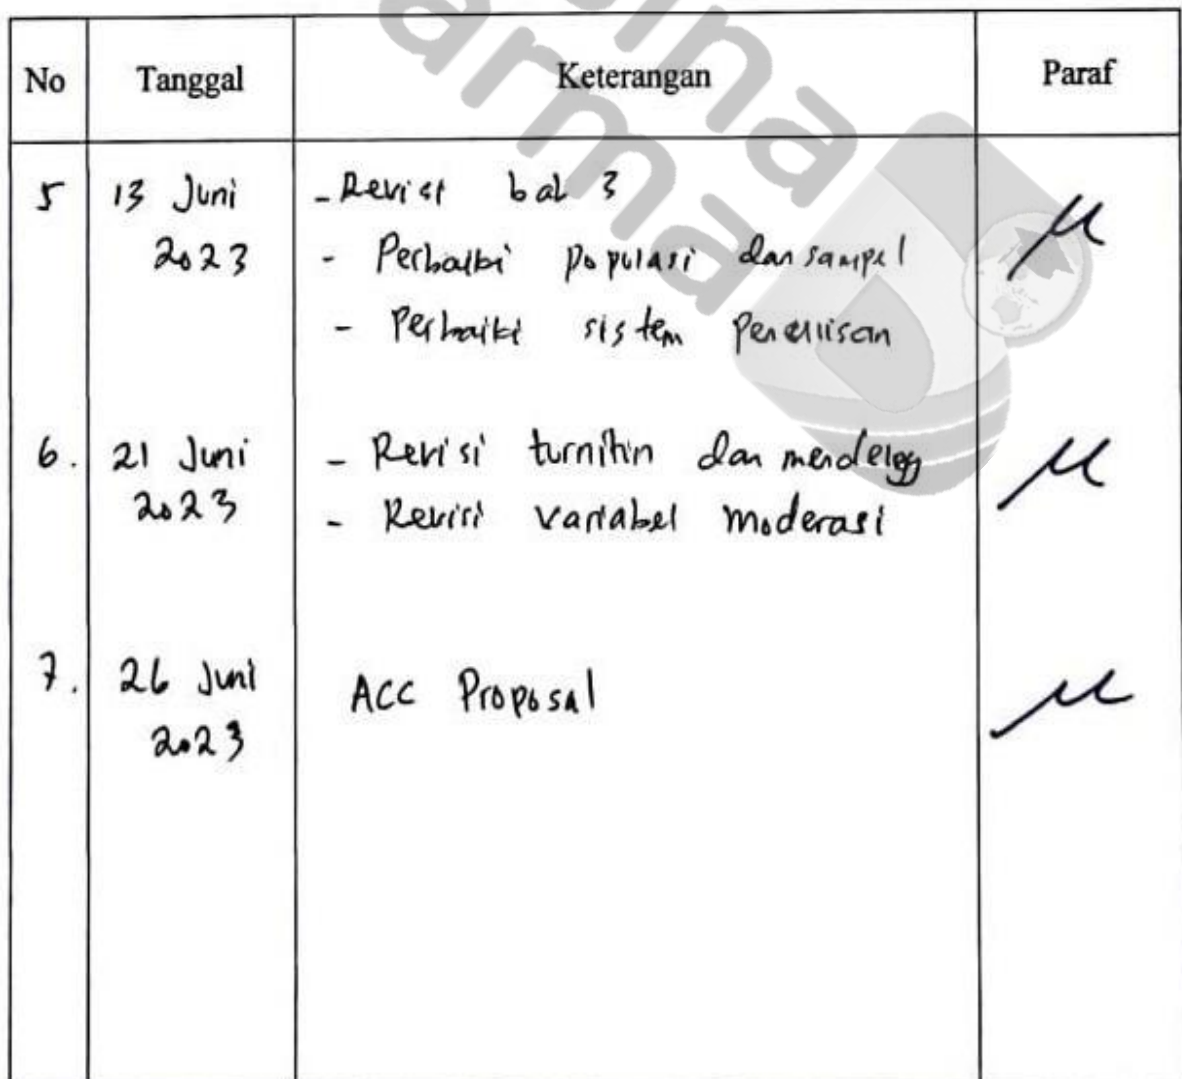 No Tanggal Keterangan Paraf
5 13 Juni 2023 - Revisi bab 3
- Perbaiki populasi dan sampel
- Perbaiki sistem penulisan
6. 21 Juni 2023 - Revisi turnitin dan mendeley
- Revisi variabel moderasi
7. 26 Juni 2023 ACC Proposal